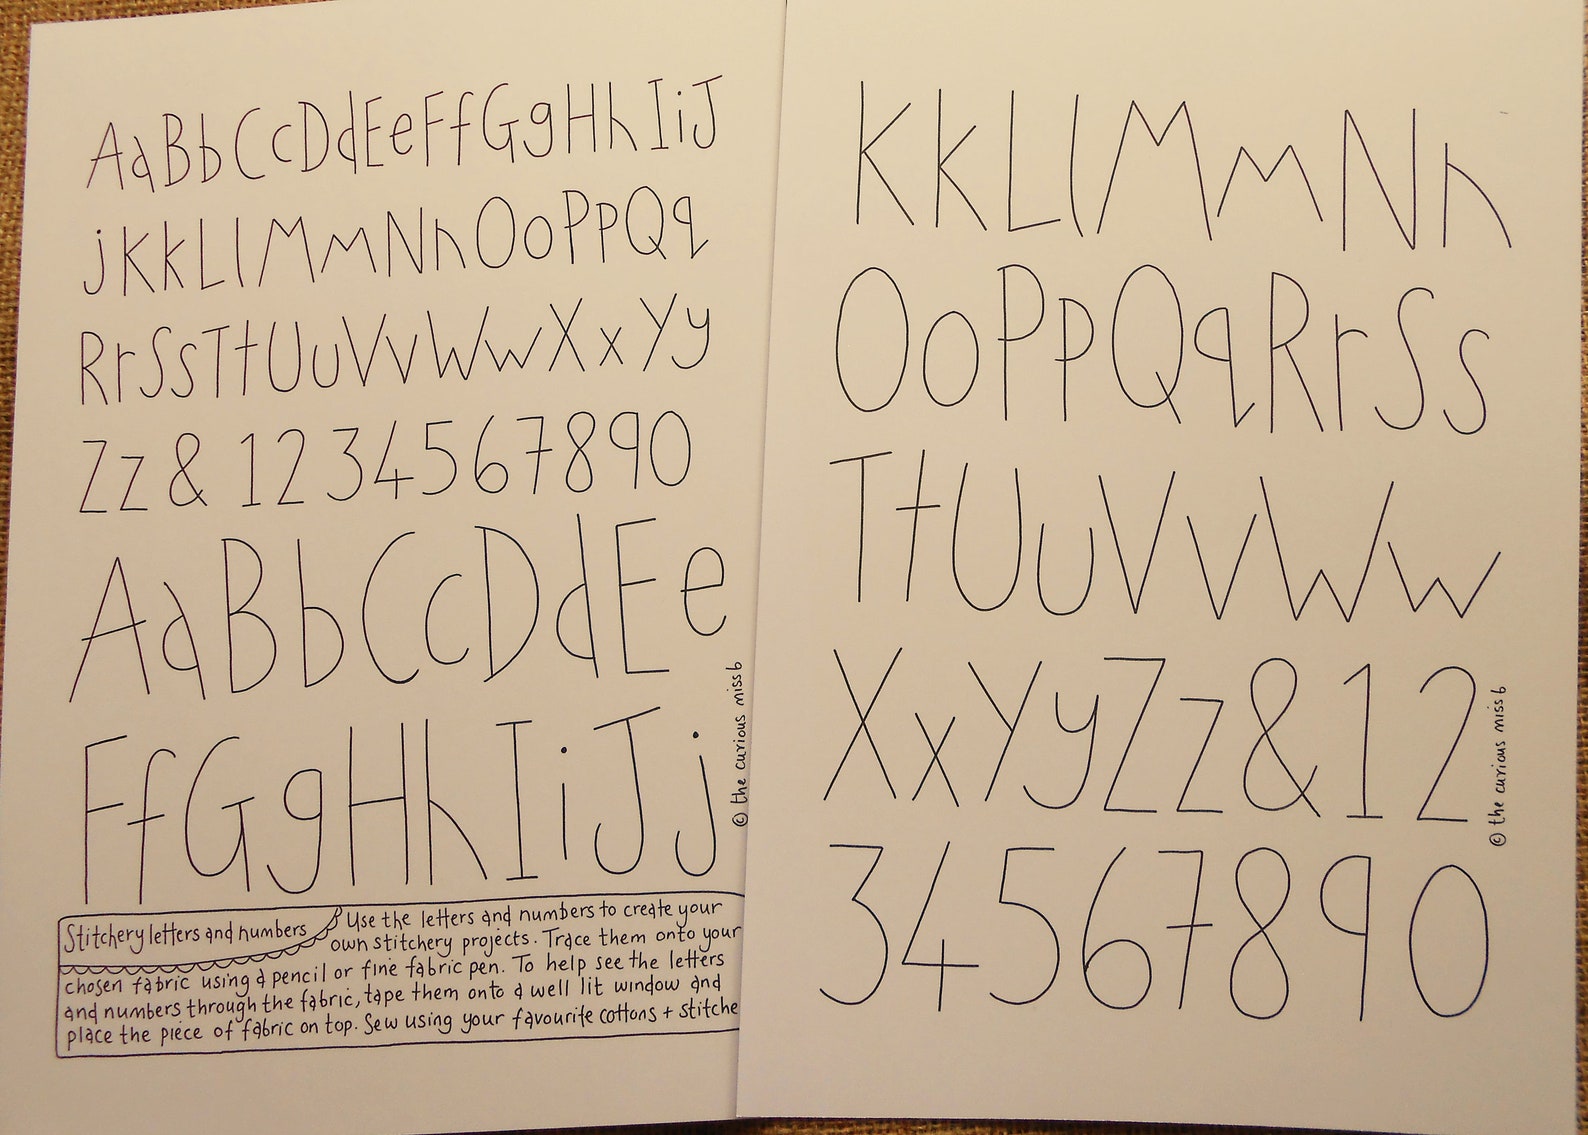 AaBbCcDdEeFfGgHhIiJ
jKkLlMmNnOoPpQq
RrSsTtUuVvWwXxYy
Zz & 1234567890
AaBbCcDdEe
FfGgHhIiJj
© the curious miss b
Stitchery letters and numbers Use the letters and numbers to create your
own stitchery projects. Trace them onto your
chosen fabric using a pencil or fine fabric pen. To help see the letters
and numbers through the fabric, tape them onto a well lit window and
place the piece of fabric on top. Sew using your favourite cottons + stitche
KkLlMmNn
OoPpQqRrSs
TtUuVvWw
XxYyZz&12
34567890
© the curious miss b